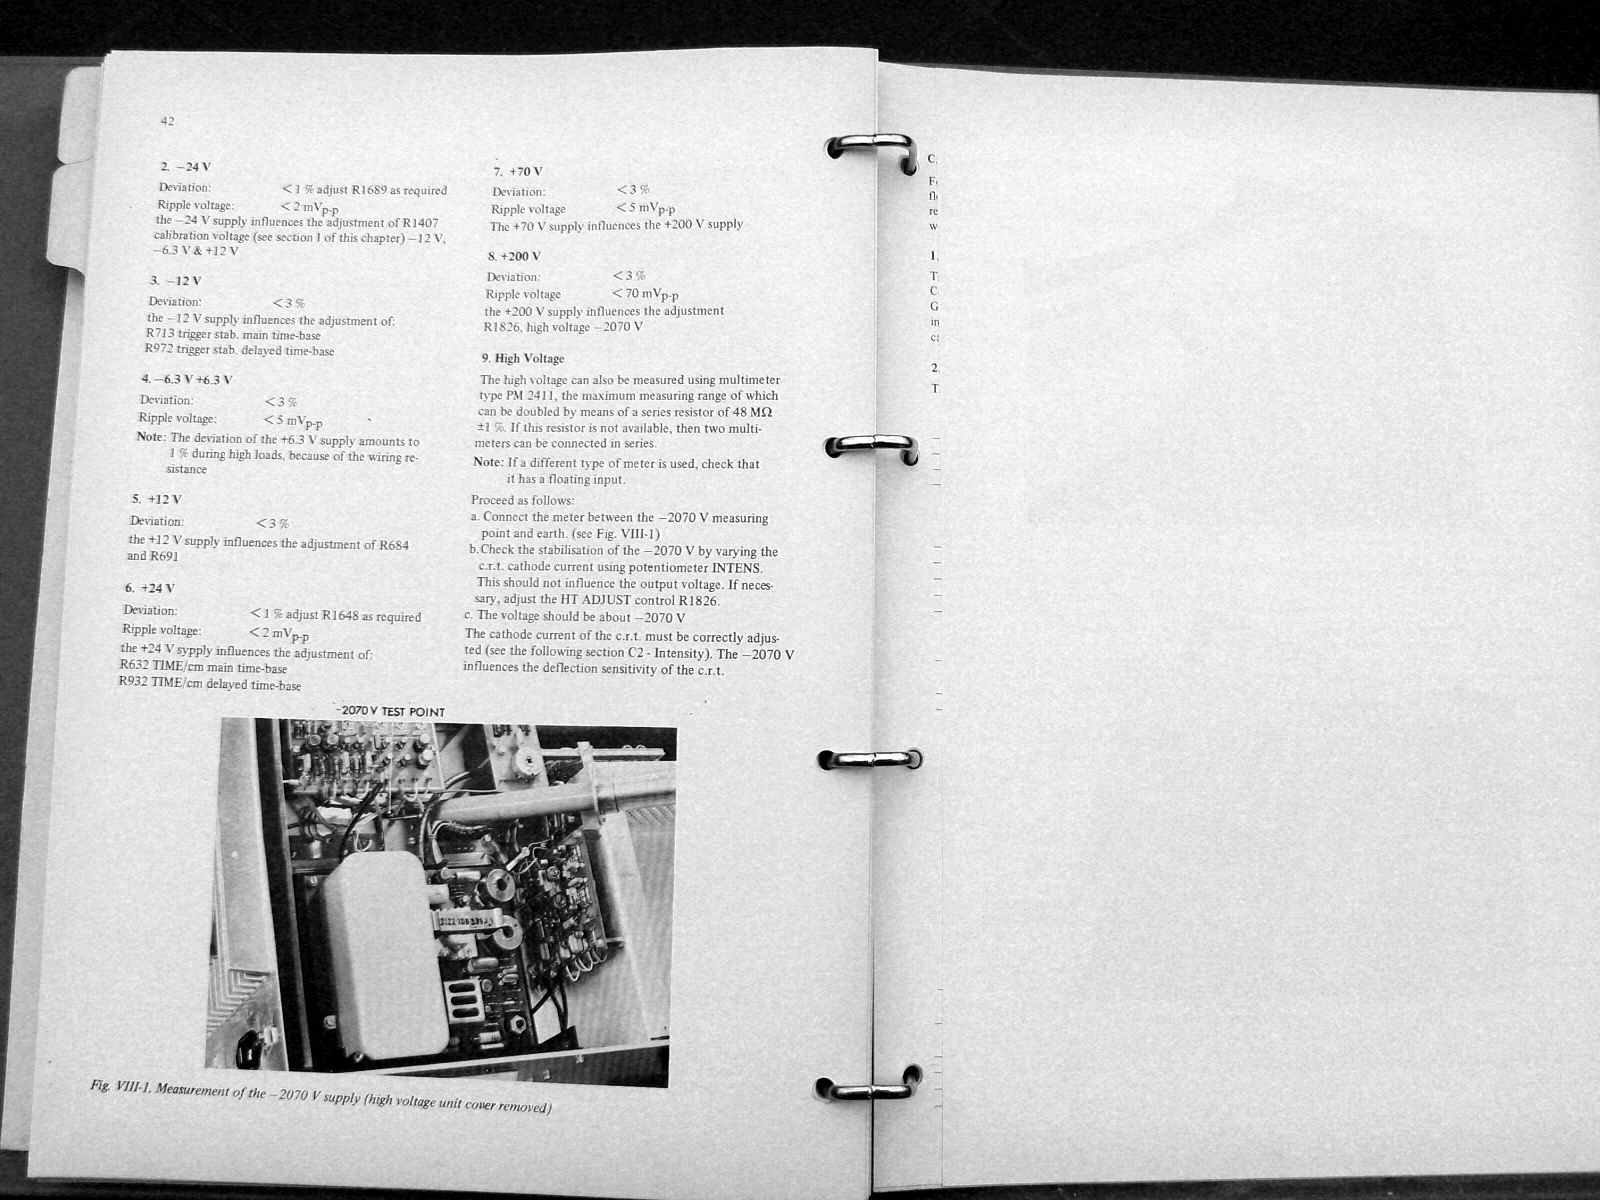 42
2. −24 V
Deviation: < 1 % adjust R1689 as required
Ripple voltage: < 2 mVp-p
the −24 V supply influences the adjustment of R1407
calibration voltage (see section I of this chapter) −12 V,
−6.3 V & +12 V
3. −12 V
Deviation: < 3 %
the −12 V supply influences the adjustment of:
R713 trigger stab. main time-base
R972 trigger stab. delayed time-base
4. −6.3 V +6.3 V
Deviation: < 3 %
Ripple voltage: < 5 mVp-p
Note: The deviation of the +6.3 V supply amounts to
1 % during high loads, because of the wiring re-
sistance
5. +12 V
Deviation: < 3 %
the +12 V supply influences the adjustment of R684
and R691
6. +24 V
Deviation: < 1 % adjust R1648 as required
Ripple voltage: < 2 mVp-p
the +24 V sypply influences the adjustment of:
R632 TIME/cm main time-base
R932 TIME/cm delayed time-base
7. +70 V
Deviation: < 3 %
Ripple voltage < 5 mVp-p
The +70 V supply influences the +200 V supply
8. +200 V
Deviation: < 3 %
Ripple voltage < 70 mVp-p
the +200 V supply influences the adjustment
R1826, high voltage −2070 V
9. High Voltage
The high voltage can also be measured using multimeter
type PM 2411, the maximum measuring range of which
can be doubled by means of a series resistor of 48 MΩ
±1 %. If this resistor is not available, then two multi-
meters can be connected in series.
Note: If a different type of meter is used, check that
it has a floating input.
Proceed as follows:
a. Connect the meter between the −2070 V measuring
point and earth. (see Fig. VIII-1)
b. Check the stabilisation of the −2070 V by varying the
c.r.t. cathode current using potentiometer INTENS.
This should not influence the output voltage. If neces-
sary, adjust the HT ADJUST control R1826.
c. The voltage should be about −2070 V
The cathode current of the c.r.t. must be correctly adjus-
ted (see the following section C2 - Intensity). The −2070 V
influences the deflection sensitivity of the c.r.t.
-2070 V TEST POINT
Fig. VIII-1. Measurement of the −2070 V supply (high voltage unit cover removed)
C.
re
w
1.
T
C
G
in
2.
T